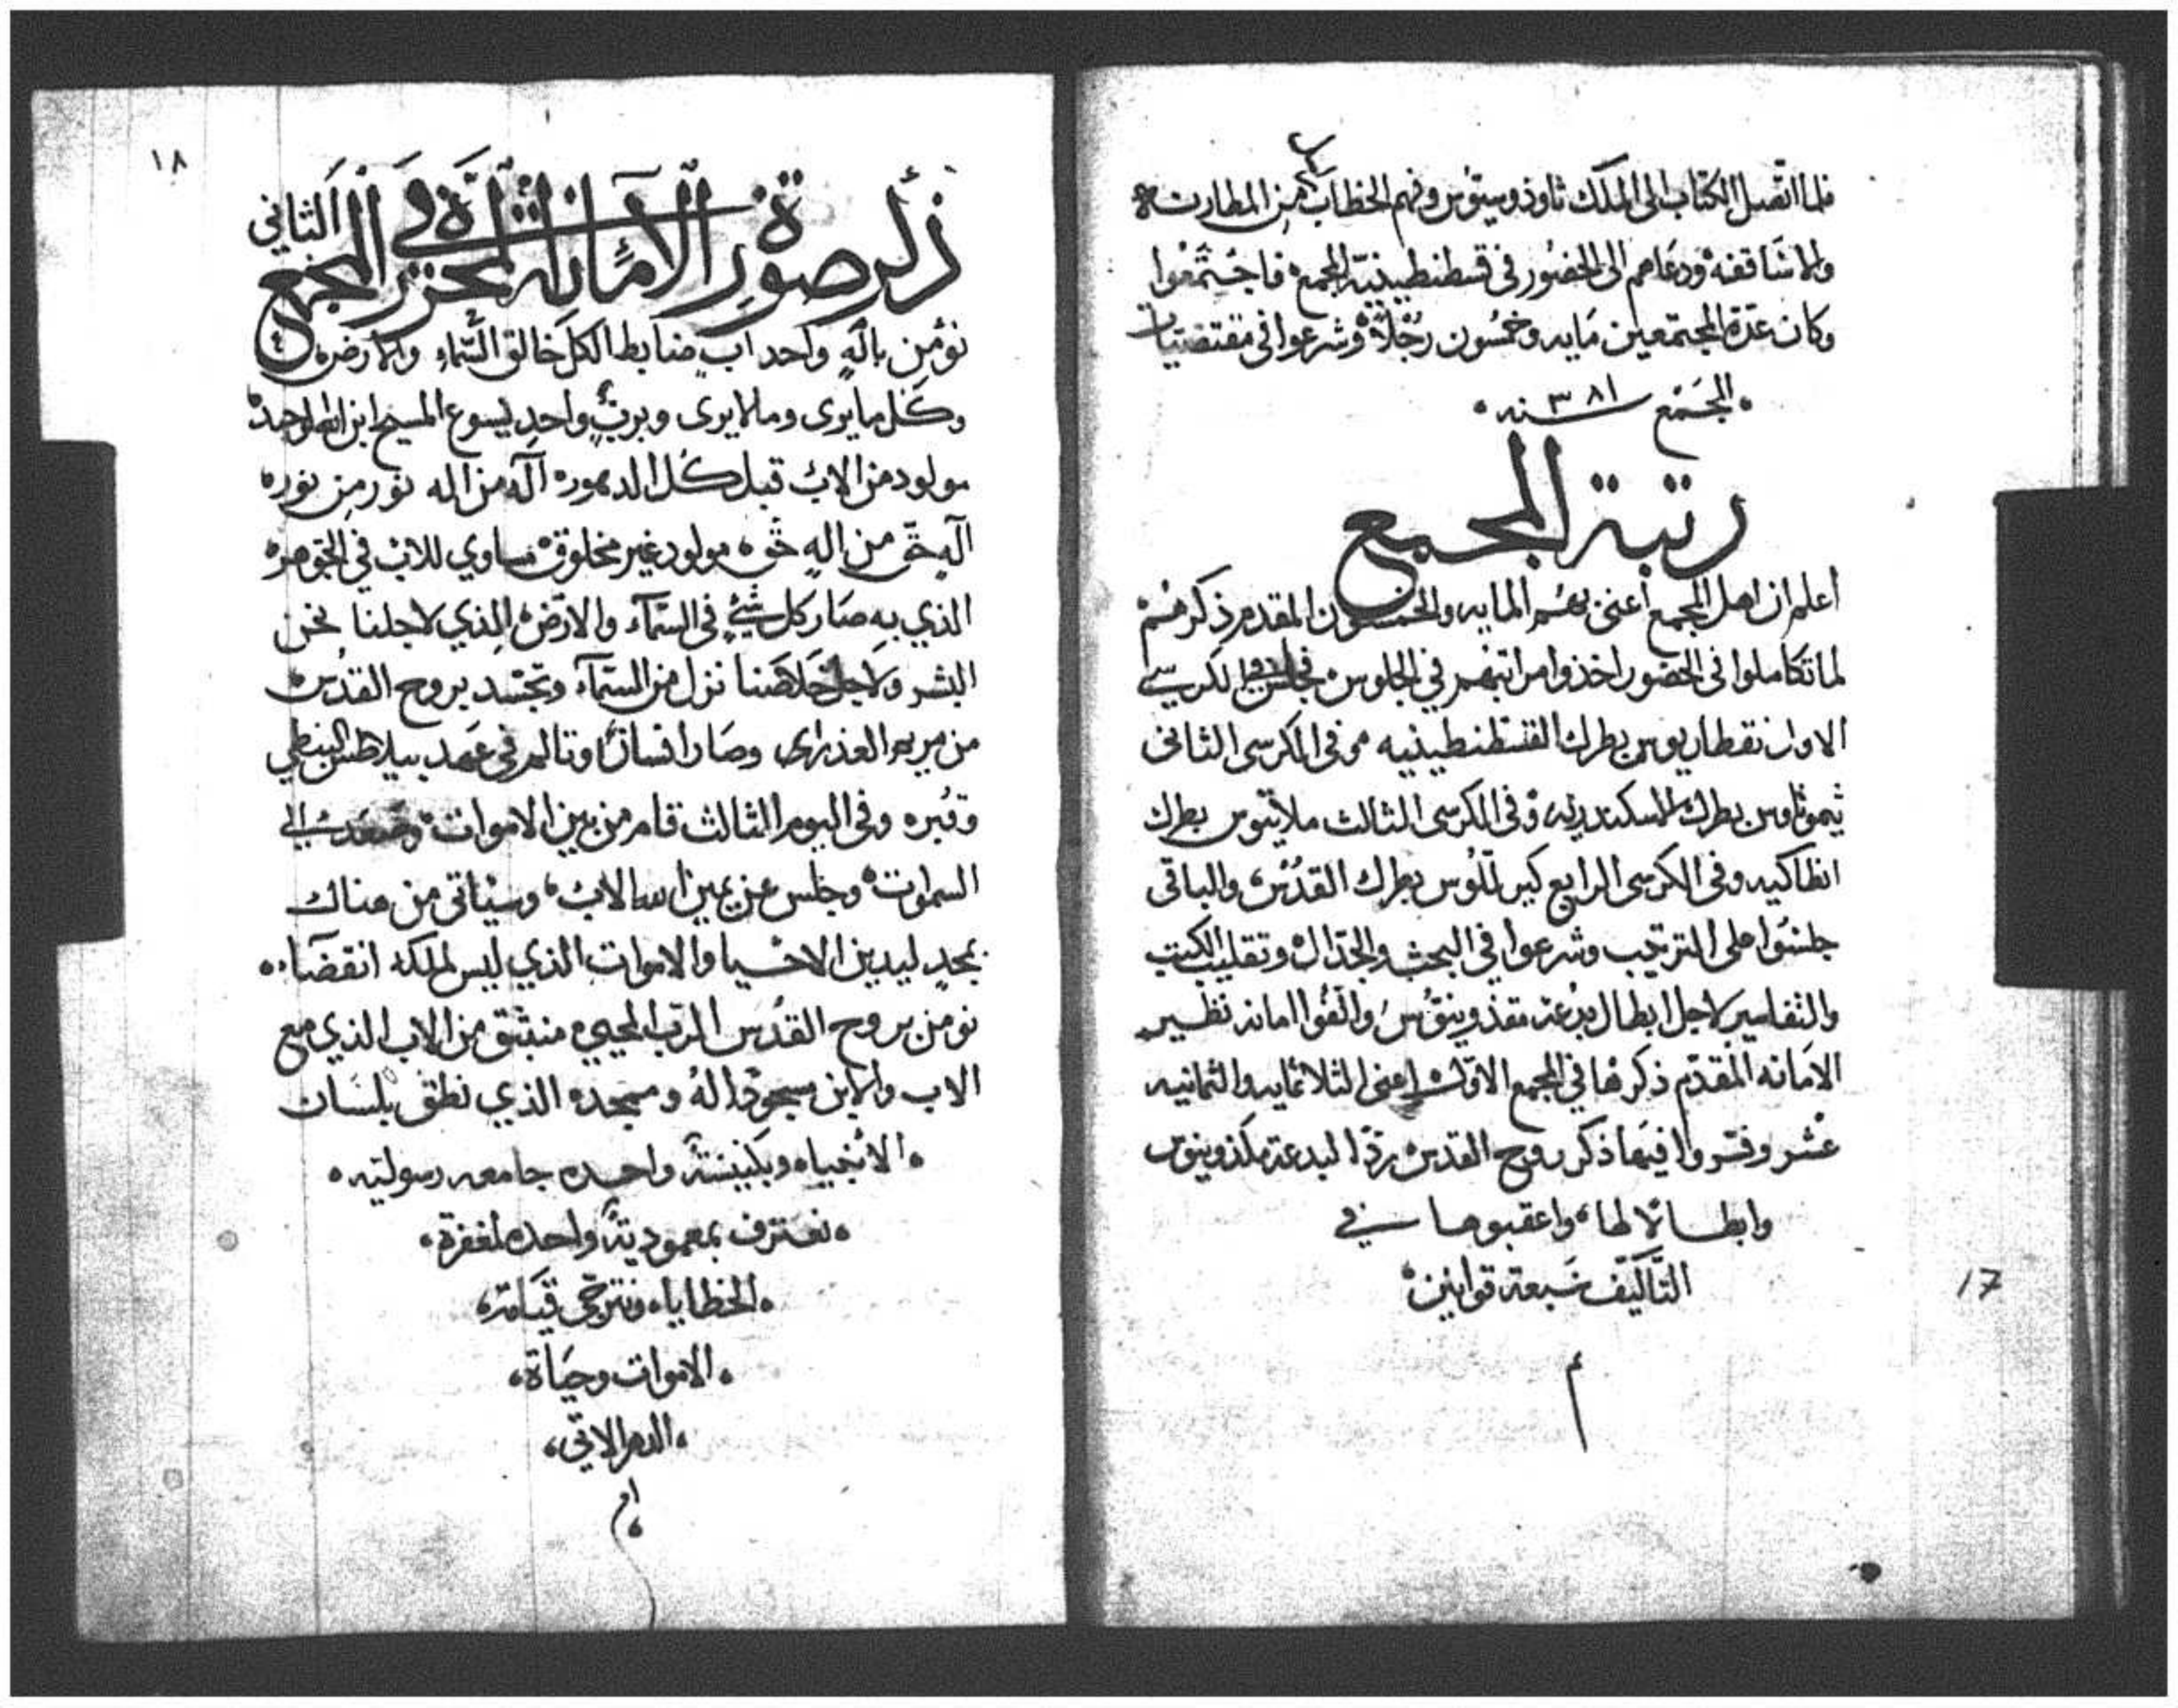 فلما اتصل الكتاب الى الملك ثاوذوسيوس وفهم الخطاب من المطارنه
والاساقفه ودعاهم الى الحضور في قسطنطينيه المجمع فاجتمعوا
وكان عدة المجتمعين مايه وخمسون رجلاً وشرعوا في مقتضيات
المجمع سنه ٣٨١
رتبة المجمع
اعلم ان اهل المجمع اعني بهم المايه والخمسون المقدم ذكرهم
لما تكاملوا في الحضور اخذوا مراتبهم في الجلوس فجلس في الكرسي
الاول نقطاريوس بطرك القسطنطينيه وفي الكرسي الثاني
ثيموثاوس بطرك الاسكندريه وفي الكرسي الثالث ملاتيوس بطرك
انطاكيه وفي الكرسي الرابع كيرللوس بطرك القدس، والباقي
جلسوا على الترتيب وشرعوا في البحث والجدال وتقليب الكتب
والتفاسير لاجل ابطال بدعة مقذونيوس والفوا امانه نظير
الامانه المقدم ذكرها في المجمع الاول اعني الثلاثمايه والثمانيه
عشر وفسروا فيها ذكر روح القدس ردًا لبدعة مكذونيوس
وابطالا لها، واعقبوها في
التاليف سبعة قوانين
17
١٨
ذكر صورة الامانه المحررة في المجمع الثاني
نؤمن باله واحد اب ضابط الكل خالق السماء والارض
وكل ما يرى وما لا يرى وبرب واحد يسوع المسيح ابن الله الوحيد
مولود من الاب قبل كل الدهور اله من اله نور من نور
اله حق من اله حق مولود غير مخلوق مساوي للاب في الجوهر
الذي به صار كل شيء في السمآء والارض الذي لاجلنا نحن
البشر ولاجل خلاصنا نزل من السمآء وتجسد بروح القدس
من مريم العذراى وصار انسانًا وتالم في عهد بيلاطس البنطي
وقبر وفي اليوم الثالث قام من بين الاموات وصعد الى
السموات وجلس عن يمين الله الاب، وسياتي من هناك
بمجد ليدين الاحيا والاموات الذي ليس لملكه انقضآ
نومن بروح القدس الرب المحيي منبثق من الاب الذي مع
الاب والابن سجودا له ومسجده الذي نطق بلسان
الانبياه وبكنيسة واحده جامعه رسوليه
نعترف بمعموديةٍ واحده لمغفرة
الخطايا ونترجى قيامة
الاموات وحياة
الدهر الاتي